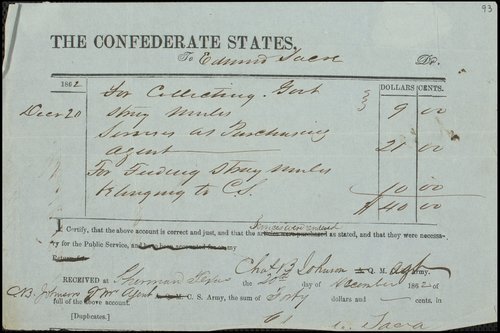 93
THE CONFEDERATE STATES,
To Edmund Dr.
1862 DOLLARS CENTS.
For Collecting Govt
Decr 20 Stray Mules 9 00
Services as Purchasing
Agent 21 00
For Feeding Stray Mules
belonging to C.S. 10 00
$ 40 00
Services were rendered
I Certify, that the above account is correct and just, and that the articles were purchased as stated, and that they were necessa-
ry for the Public Service, and have been accounted for on my
Return for
Johnson Q. M. Army.
RECEIVED at Sherman Texas the 20th day of December 1862 of
Johnson Q M Agent Q. M. C. S. Army, the sum of Forty dollars and — cents, in
full of the above account.
[Duplicates.]